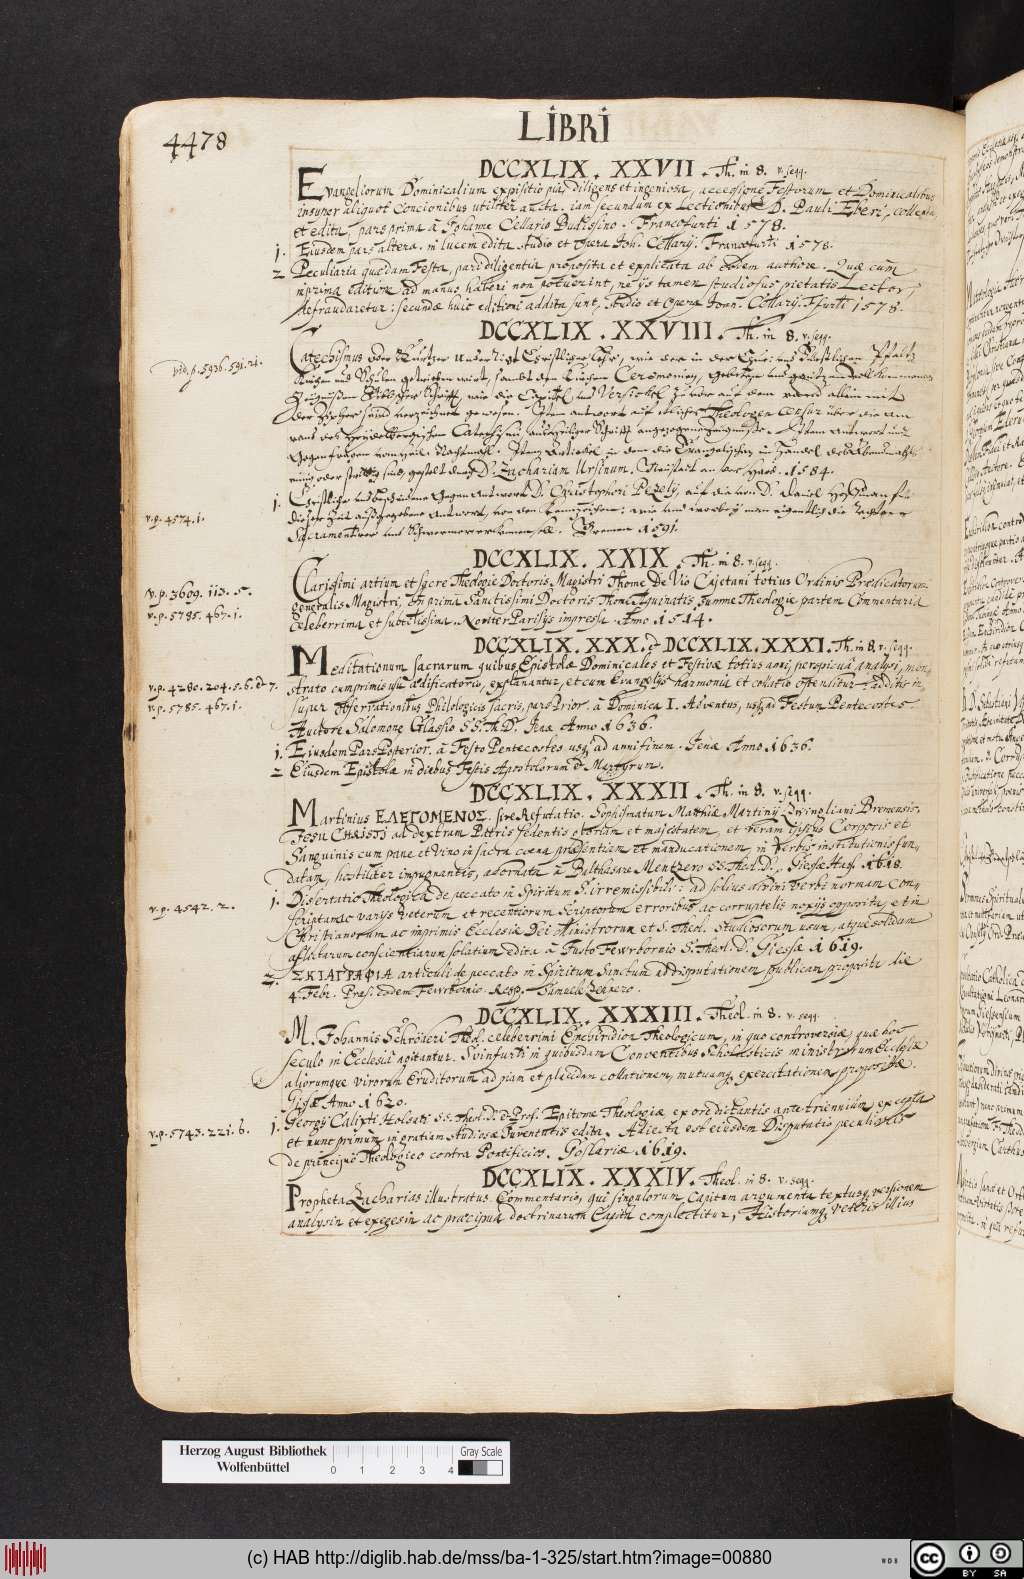 4478
LIBRI
DCCXLIX. XXVII. Th. in 8. v. seqq.
Evangeliorum Dominicalium expositio pia, diligens et ingeniosa, accessione Festorum et Dominicalibus
insuper aliquot Concionibus utiliter aucta. iam secundum ex Lectionibus D. Pauli Eberi, collecta
et edita, pars prima à Johanne Cellario Budissino. Francofurti 1578.
1. Eiusdem pars altera. in lucem edita studio et opera Joh. Cellarij. Francofurti 1578.
2 Peculiaria quaedam Festa, pari diligentia proposita et explicata ab eodem authore. Quae cum
in prima editione ad manus haberi non potuerint, ne ijs tamen studiosus pietatis Lector,
defraudaretur: secundae huic editioni addita sunt, studio et opera Joan. Cellarij. Ffurti 1578.
DCCXLIX. XXVIII. Th. in 8. v. seqq.
vid. p. 5936. 591. 24.
Catechismus oder Kurtzer Underricht Christlicher Lehr, wie der in der Chur: und Fürstlichen Pfaltz
Kirchen und Schulen getrieben wirdt, sambt den Kirchen Ceremonien, Gebetten und
Zeugnüssen Biblischer Schrifft, wie die Capittel und Versickel zuvor auf dem rand allein mit
der Zipher sind verzeichnet gewesen. Item antwort auf etlicher Theologen Censur über die am
rand des Heydelbergischen Catechismi auss heiliger Schrifft angezogene Zeugnüsse. Item Antwort und
Gegenfragen vom heil. Nachtmahl. Item Artickel in dem die Evangelischen im Handel des Abendmahls
einig oder streittig sind, gestelt durch D. Zachariam Ursinum. Neustatt an der Hard. 1584.
v. p. 4574. 1.
1. Christliche und bescheidene Gegen Antwort D. Christophori Pezelij, auf die von D. Daniel Hofman für
dieser Zeit aussgegebene Antwort, von den Kennzeichen: wie und wobey man eigentlich die
Sacramentirer und Schwermer erkennen soll. Bremen 1591.
DCCXLIX. XXIX. Th. in 8. v. seqq.
v. p. 3609. 113. 5.
v. p. 5785. 467. 1.
Clarissimi artium et sacre Theologie Doctoris Magistri Thome De Vio Cajetani totius Ordinis Praedicatorum
generalis Magistri, In prima Sanctissimi Doctoris Thome Aquinatis summe Theologie partem Commentaria
Celeberrima et subtilissima. Noviter Parisijs impressa. Anno 1514.
DCCXLIX. XXX. & DCCXLIX. XXXI. Th. in 8. v. seqq.
v. p. 4280. 204. 5. 6. & 7.
v. p. 5785. 467. 1.
Meditationum sacrarum quibus Epistolae Dominicales et Festivae totius anni, perspicuâ analysi, mon-
strato cumprimis usu aedificatorio, explanantur, et cum Evangelijs harmonia et cohaesio ostenditur. additis in-
super observationibus Philologicis sacris, pars Prior. à Dominica I. Adventus, usque ad Festum Pentecostes.
Auctore Salomone Glassio SS. Th. D. Jenae Anno 1636.
1. Eiusdem Pars Posterior. à Festo Pentecostes usque ad anni finem. Jenae Anno 1636.
2 Eiusdem Epistolae in diebus Festis Apostolorum & Martyrum.
DCCXLIX. XXXII. Th. in 8. v. seqq.
Martinius ΕΛΕΓΟΜΕΝΟΣ. sive Refutatio. Sophismatum Matthiae Martinij Zwingliani Bremensis.
JESU CHRISTI ad dextram Patris sedentis gloriam et majestatem, et veram ipsius Corporis et
Sanguinis cum pane et vino in sacra coena praesentiam et manducationem, in Verbis institutionis fun-
datam, hostiliter impugnantis, adornata à Balthasare Mentzero SS. Theol. D. Giessae Hass. 1618.
v. p. 4542. 2.
1. Dissertatio Theologica de peccato in Spiritum S. irremissibili: ad solius divini verbi normam con-
scripta ac varijs veterum et recentiorum Scriptorum erroribus ac corruptelis noxijs opposita, et in
Christianorum ac imprimis Ecclesiae Dei Ministrorum et S. Theol. Studiosorum usum, atque solidum
afflictarum conscientiarum solatium edita à Justo Fewrbornio S. Theol. D. Giessae 1619.
2. ΣΚΙΑΓΡΑΦΙΑ articuli de peccato in Spiritum Sanctum ad disputationem publicam proposita die
4. Febr. Praes. eodem Fewrbornio. Resp. Samuele Zeapero.
DCCXLIX. XXXIII. Theol. in 8. v. seqq.
M. Johannis Schröteri Theol. celeberrimi Enchiridion Theologicum, in quo controversiae, quae hoc
seculo in Ecclesiâ agitantur. Svinfurti in quibusdam Conventibus Scholasticis ministrorum Ecclesiae
aliorumque virorum Eruditorum ad piam et placidam collationem, mutuamque exercitationem propositae.
Gissae Anno 1620.
v. p. 5743. 221. 6.
1. Georgij Calixti Holsati SS. Theol. D. & Prof. Epitome Theologiae ex ore dictantis ante triennium excepta
et nunc primum in gratiam studiosae Juventutis edita. Adiecta est eiusdem Disputatio peculiaris
de principio Theologico contra Pontificios. Goslariae 1619.
DCCXLIX. XXXIV. Theol. in 8. v. seqq.
Propheta Zacharias illustratus Commentario, qui singulorum Capitum argumenta textusque versionem
analysin et exegesin ac praecipua doctrinarum Capita complectitur, Historiamque veteris illius
Herzog August Bibliothek
Wolfenbüttel
0 1 2 3 4
Gray Scale
(c) HAB http://diglib.hab.de/mss/ba-1-325/start.htm?image=00880
WDB
cc BY SA